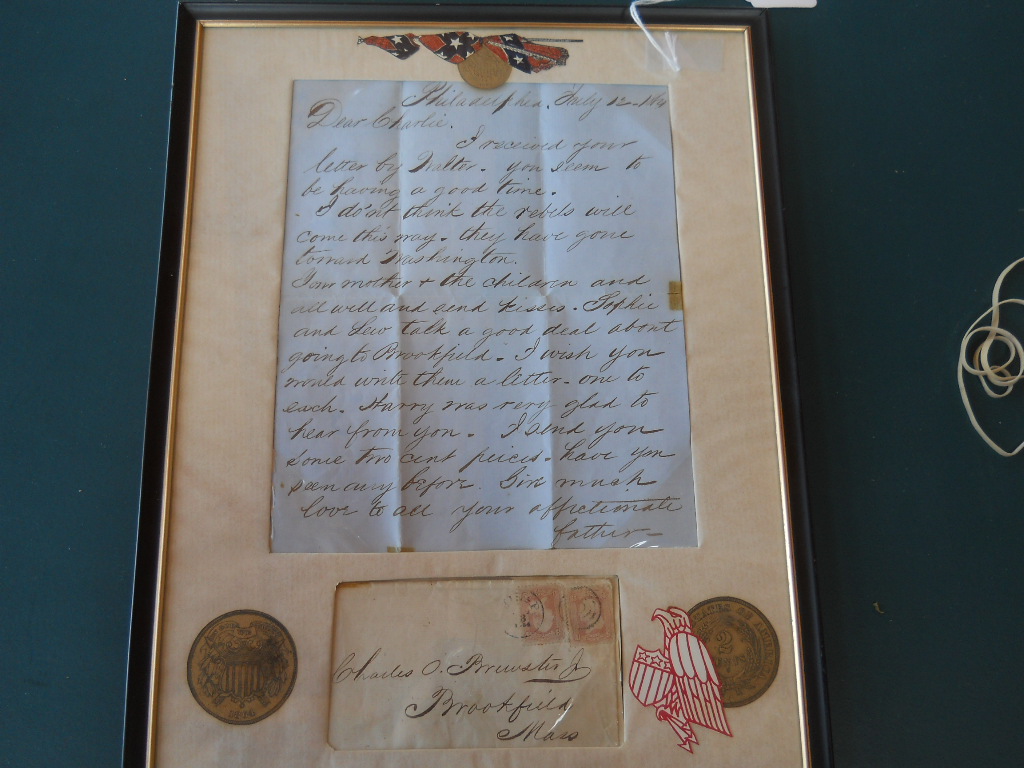 Philadelphia, July 12 - 1864
Dear Charlie.
I received your
letter by Walter - you seem to
be having a good time.
- I do'nt think the rebels will
come this way - they have gone
toward Washington.
mother + the children and
all well and send kisses - Sophie
and Lew talk a good deal about
going to Brookfield - I wish you
would write them a letter - one to
each. Harry was very glad to
hear from you - I send you
some two cent peices - have you
seen any before. Give much
love to all your affectionate
father -
Charles O. Brewster Jr
Brookfield
Mass
STATES OF
2